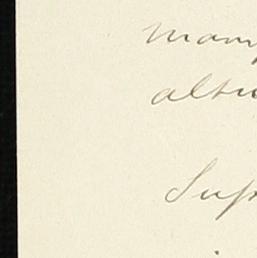 many
altu
Sup